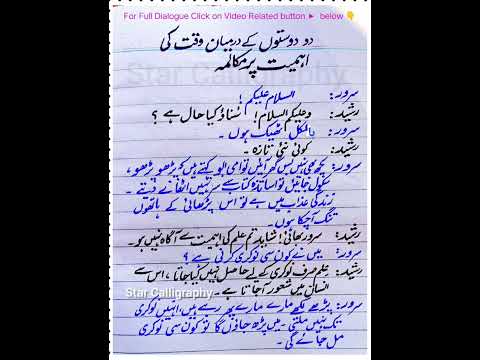 For Full Dialogue Click on Video Related button ► below 👇
دو دوستوں کے درمیان وقت کی
اہمیت پر مکالمہ
Star Calligraphy
سرور: السلام علیکم!
رشید: وعلیکم السلام! سُناؤ کیا حال ہے؟
سرور: بالکل ٹھیک ہوں۔
رشید: کوئی نئی تازہ۔
سرور: کچھ بھی نہیں بس گھر میں تو امی ابو کہتے ہیں کہ پڑھو پڑھو،
سکول جائیں تو اساتذہ کتاب سے سر نہیں اٹھانے دیتے۔
زندگی عذاب میں ہے تو اس پڑھائی کے ہاتھوں
تنگ آچکا ہوں۔
رشید: سرور بھائی! شاید تم علم کی اہمیت سے آگاہ نہیں ہو۔
سرور: میں نے کون سی نوکری کرنی ہے؟
رشید: علم صرف نوکری کے لیے حاصل نہیں کیا جاتا، اس سے
انسان میں شعور آجاتا ہے۔
Star Calligraphy
سرور: پڑھے لکھے مارے مارے پھر رہے ہیں، انہیں نوکری
تک نہیں ملتی۔ میں پڑھ جاؤں گا تو کون سی نوکری
مل جائے گی۔